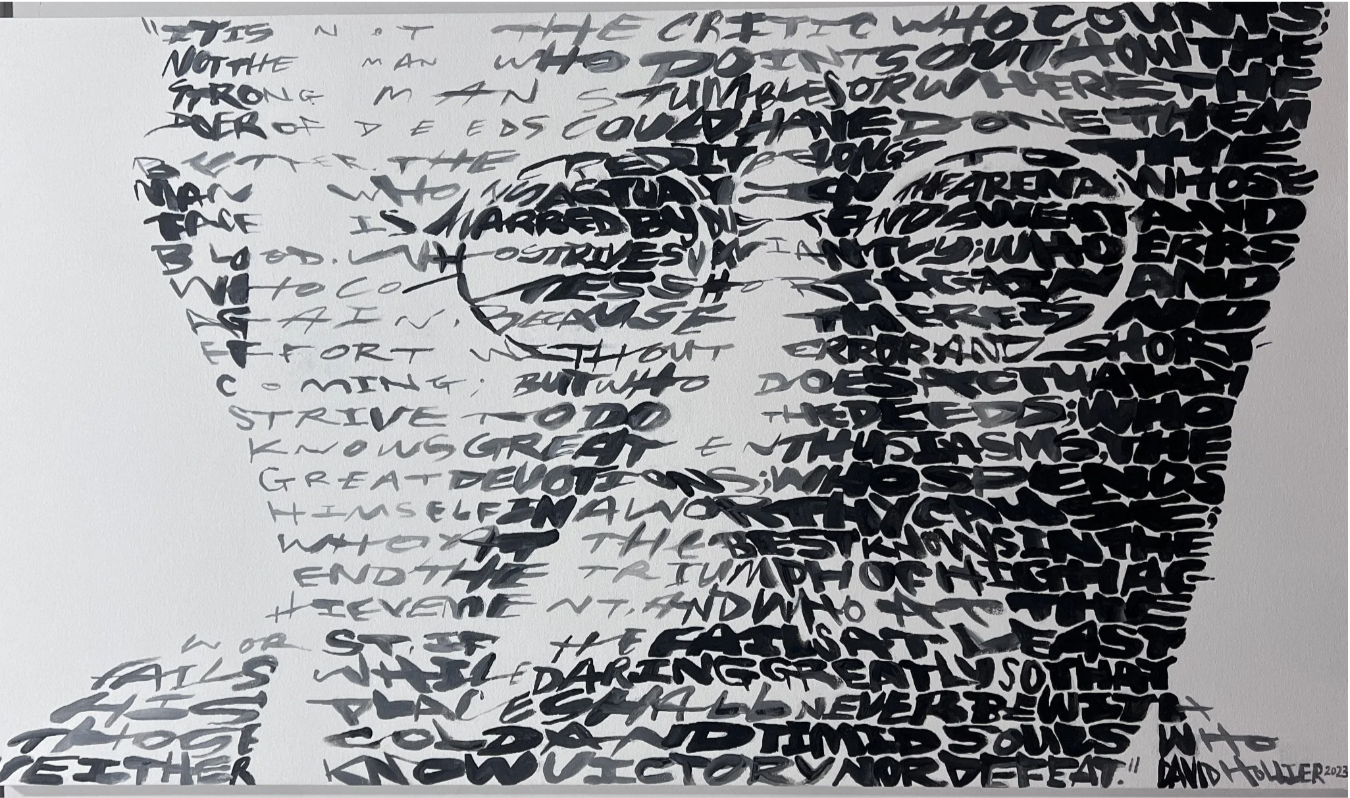 "IT IS NOT THE CRITIC WHO COUNTS;
NOT THE MAN WHO POINTS OUT HOW THE
STRONG MAN STUMBLES OR WHERE THE
DOER OF DEEDS COULD HAVE DONE THEM
BETTER. THE CREDIT BELONGS TO THE
MAN WHO IS ACTUALLY IN THE ARENA, WHOSE
FACE IS MARRED BY DUST AND SWEAT AND
BLOOD. WHO STRIVES VALIANTLY; WHO ERRS
WHO COMES SHORT AGAIN AND
AGAIN. BECAUSE THERE IS NO
EFFORT WITHOUT ERROR AND SHORT
COMING; BUT WHO DOES ACTUALLY
STRIVE TO DO THE DEEDS; WHO
KNOWS GREAT ENTHUSIASMS, THE
GREAT DEVOTIONS; WHO SPENDS
HIMSELF IN A WORTHY CAUSE;
WHO AT THE BEST KNOWS IN THE
END THE TRIUMPH OF HIGH AC
HIEVEMENT. AND WHO AT THE
WORST, IF HE FAILS AT LEAST
FAILS WHILE DARING GREATLY SO THAT
HIS PLACE SHALL NEVER BE WITH
THOSE COLD AND TIMID SOULS WHO
NEITHER KNOW VICTORY NOR DEFEAT."
DAVID HOLLIER 2023